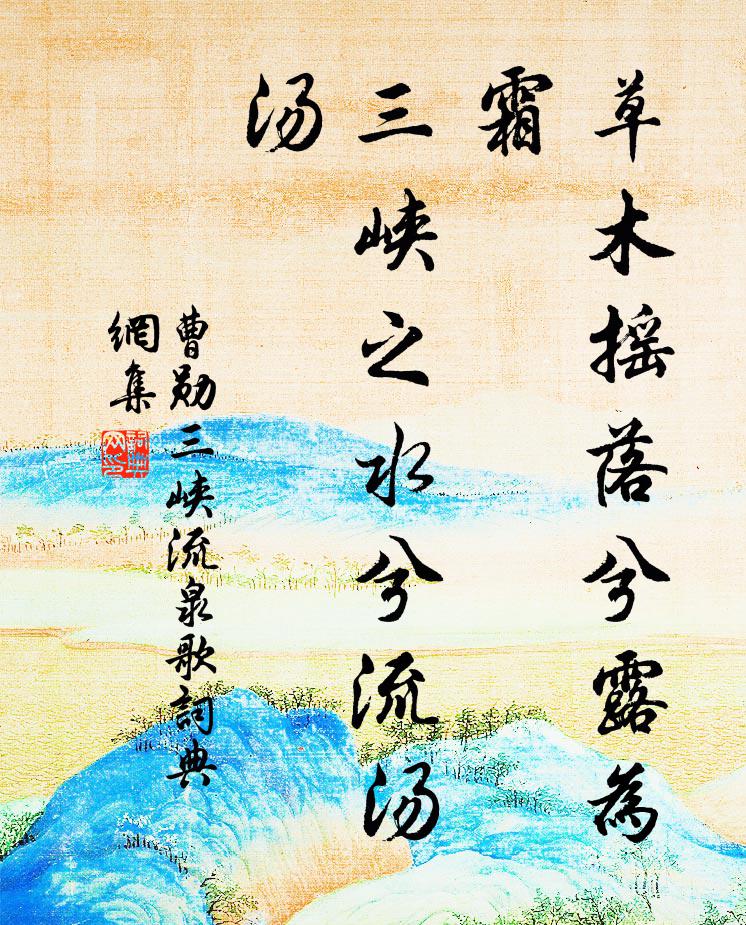 草木摇落兮露為
霜
三峡之水兮流汤
汤
曹勋三峡流泉歌詞典
網集